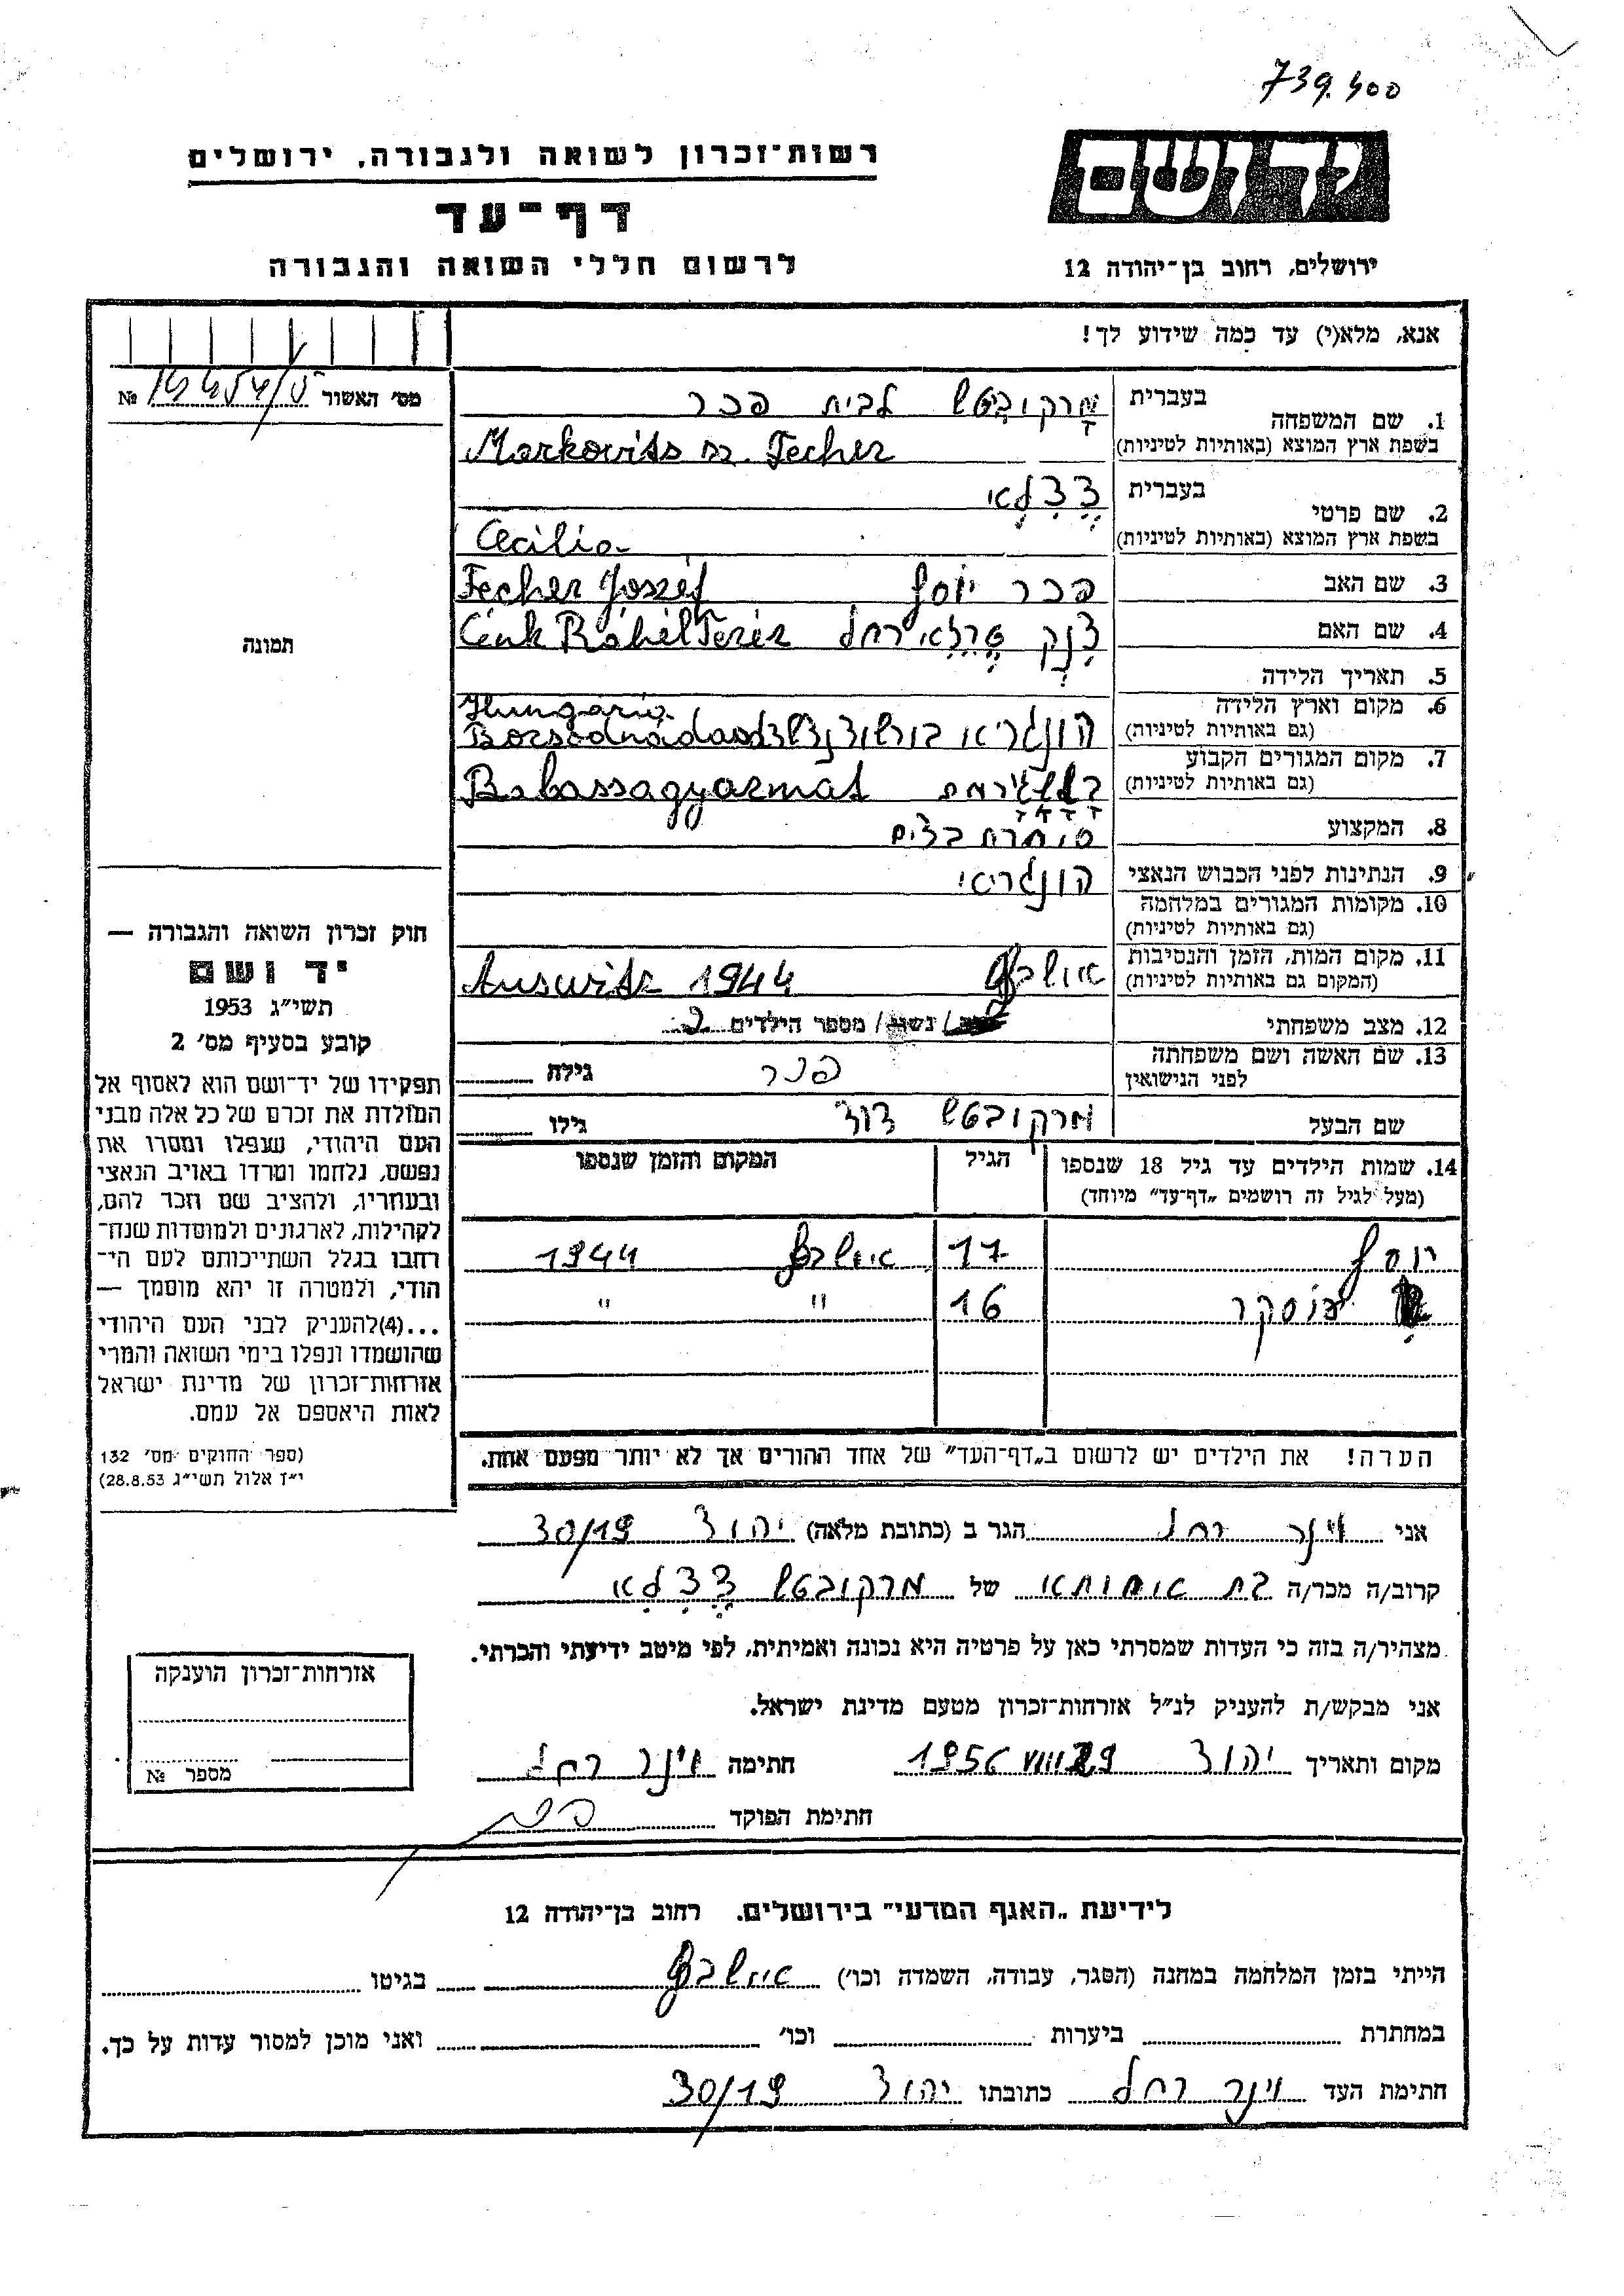 739.400
יד ושם
רשות־זכרון לשואה ולגבורה, ירושלים
דף־עד
לרשום חללי השואה והגבורה
ירושלים, רחוב בן־יהודה 12
אנא, מלא(י) עד כמה שידוע לך!
מס׳ האשור №
1. שם המשפחה בעברית מרקובטש לבית פכר
בשפת ארץ המוצא (באותיות לטיניות) Markovits sz. Fecher
2. שם פרטי בעברית צצלאי
בשפת ארץ המוצא (באותיות לטיניות) Cecilia
3. שם האב פכר יוסף Fecher József
4. שם האם צנק טרזאי רחל Cénk Ráhél Teréz
5. תאריך הלידה
6. מקום וארץ הלידה Hungária
(גם באותיות לטיניות) הונגריא Borsodnádasd
7. מקום המגורים הקבוע
(גם באותיות לטיניות) Balassagyarmat
8. המקצוע סוחרת בצים
9. הנתינות לפני הכבוש הנאצי הונגריאי
10. מקומות המגורים במלחמה
(גם באותיות לטיניות)
11. מקום המות, הזמן והנסיבות אושבץ Auswitz 1944
(המקום גם באותיות לטיניות)
12. מצב משפחתי / נשוי / מספר הילדים 2
13. שם האשה ושם משפחתה פכר גילה
לפני הנישואין
שם הבעל מרקובטש דוד גילו
14. שמות הילדים עד גיל 18 שנספו הגיל המקום והזמן שנספו
(מעל לגיל זה רושמים „דף־עד” מיוחד)
יוסף 17 אושבץ 1944
אוסקר 16 " "
הערה! את הילדים יש לרשום ב„דף־העד” של אחד ההורים אך לא יותר מפעם אחת.
תמונה
חוק זכרון השואה והגבורה —
יד ושם
תשי״ג 1953
קובע בסעיף מס׳ 2
תפקידו של יד־ושם הוא לאסוף אל
המולדת את זכרם של כל אלה מבני
העם היהודי, שנפלו ומסרו את
נפשם, נלחמו ומרדו באויב הנאצי
ובעוזריו, ולהציב שם וזכר להם,
לקהילות, לארגונים ולמוסדות שנח־
רבו בגלל השתייכותם לעם הי־
הודי, ולמטרה זו יהא מוסמך —
...(4) להעניק לבני העם היהודי
שהושמדו ונפלו בימי השואה והמרי
אזרחות־זכרון של מדינת ישראל
לאות היאספם אל עמם.
(ספר החוקים מס׳ 132
י״ז אלול תשי״ג 28.8.53)
אני וינר רחל הגר ב (כתובת מלאה) יהוד 30/19
קרוב/ה מכר/ה בת אחותא של מרקובטש צצלאי
מצהיר/ה בזה כי העדות שמסרתי כאן על פרטיה היא נכונה ואמיתית, לפי מיטב ידיעתי והכרתי.
אני מבקש/ת להעניק לנ״ל אזרחות־זכרון מטעם מדינת ישראל.
מקום ותאריך יהוד 1956 VIII 29 חתימה וינר רחל
חתימת הפוקד
אזרחות־זכרון הוענקה
מספר №
לידיעת „האגף המדעי” בירושלים. רחוב בן־יהודה 12
הייתי בזמן המלחמה במחנה (הסגר, עבודה, השמדה וכו׳) אושבץ בגיטו
במחתרת ביערות וכו׳ ואני מוכן למסור עדות על כך.
חתימת העד וינר רחל כתובתו יהוד 30/19